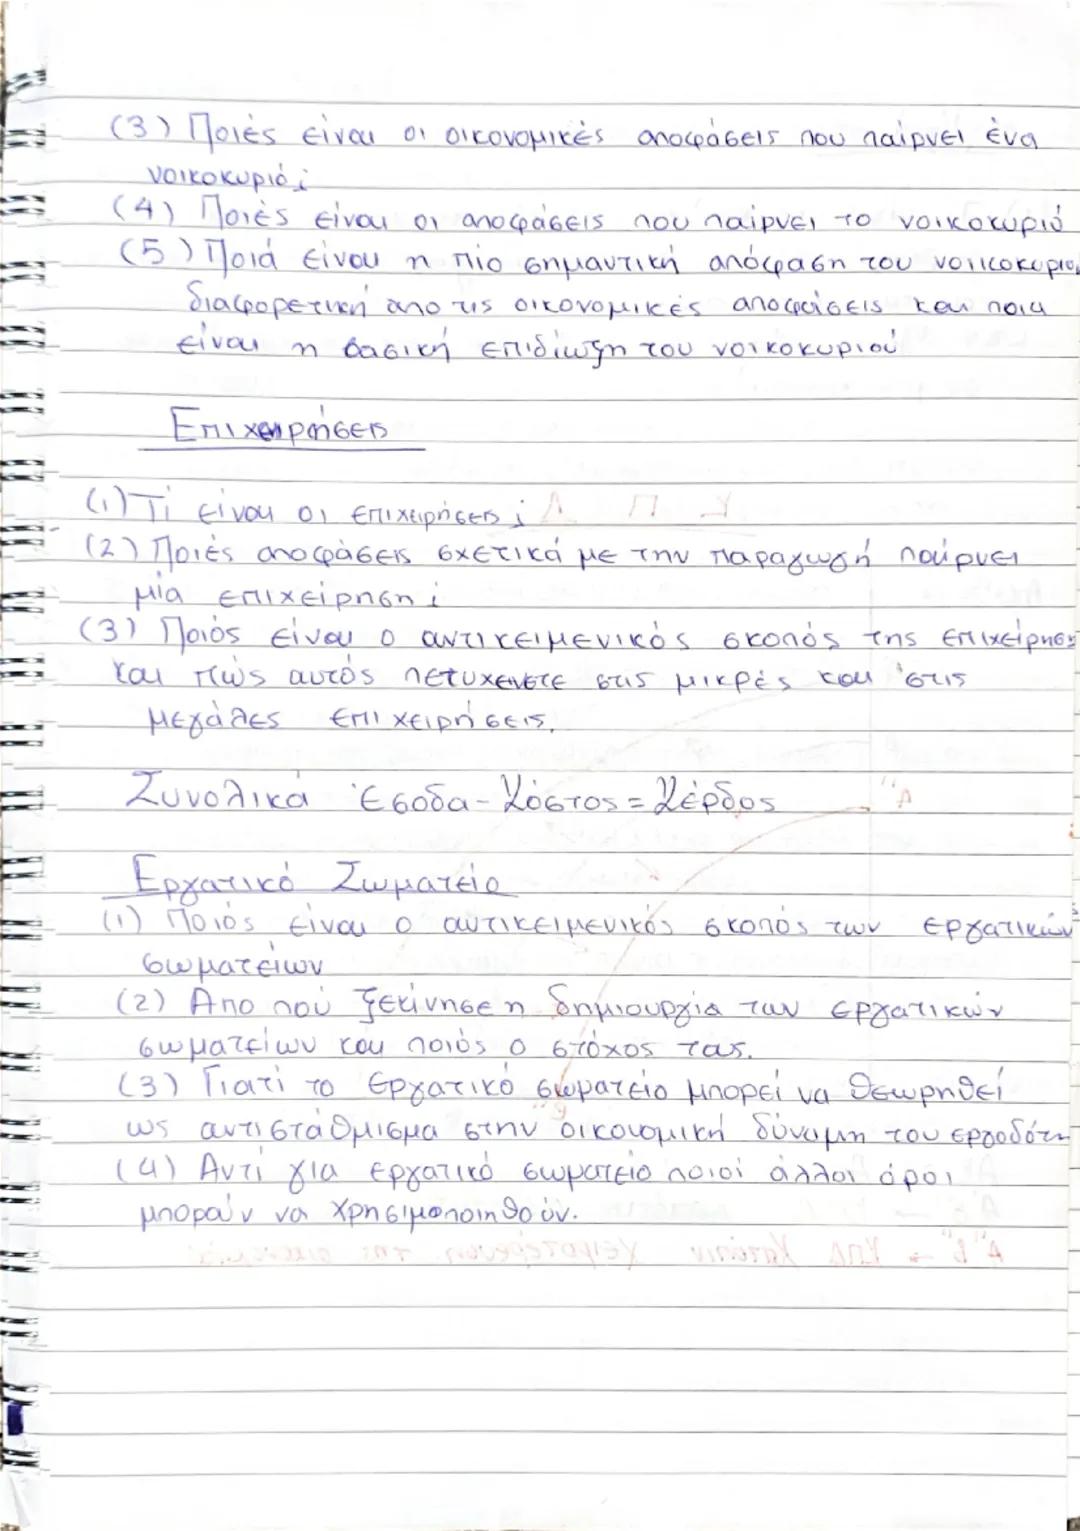 (3) Ποιές είναι οι οικονομικές αποφάσεις που παίρνει ένα
νοικοκυριό;
(4) Ποιές είναι οι αποφάσεις που παίρνει το νοικοκυριό
(5) Ποιά είναι η πιο σημαντική απόφαση του νοικοκυριού
διαφορετική απο τις οικονομικές αποφάσεις και ποια
είναι η βασική επιδίωξη του νοικοκυριού
Επιχειρήσεις
(1) Τί είναι οι επιχειρήσεις;
(2) Ποιές αποφάσεις σχετικά με την παραγωγή παίρνει
μία επιχείρηση;
(3) Ποιός είναι ο αντικειμενικός σκοπός της επιχείρησης
και πώς αυτός πετυχενετε στις μικρές και στις
μεγάλες επιχειρήσεις.
Συνολικά Έσοδα - Κόστος = Κέρδος
Εργατικό Σωματείο
(1) Ποιός είναι ο αντικειμενικός σκοπός των εργατικών
σωματείων
(2) Απο πού ξεκίνησε η δημιουργία των εργατικών
σωματείων και ποιός ο στόχος τους.
(3) Γιατί το Εργατικό σωματείο μπορεί να θεωρηθεί
ως αντιστάθμισμα στην οικονομική δύναμη του εργοδότη
(4) Αντί για εργατικό σωματείο ποιοί άλλοι όροι
μπορούν να χρησιμοποιηθούν.